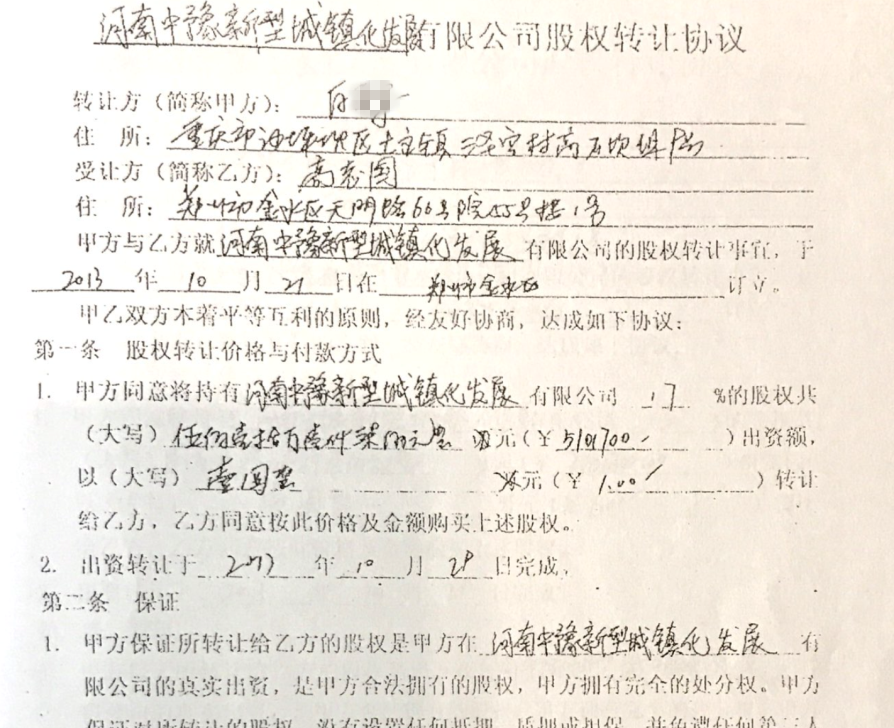 河南中豫新型城镇化发展有限公司股权转让协议
转让方（简称甲方）：白
住 所：重庆市沙坪坝区土主镇三圣宫村高石坎组
受让方（简称乙方）：高志国
住 所：郑州市金水区天明路66号院55号楼1号
甲方与乙方就河南中豫新型城镇化发展有限公司的股权转让事宜，于
2013年10月21日在郑州市金水区订立。
甲乙双方本着平等互利的原则，经友好协商，达成如下协议：
第一条 股权转让价格与付款方式
1. 甲方同意将持有河南中豫新型城镇化发展有限公司17%的股权共
（大写）伍佰壹拾万壹仟柒佰元整 元（￥5101700 ）出资额，
以（大写）壹圆整 元（￥1.00 ）转让
给乙方，乙方同意按此价格及金额购买上述股权。
2. 出资转让于2013年10月28日完成。
第二条 保证
1. 甲方保证所转让给乙方的股权是甲方在河南中豫新型城镇化发展有
限公司的真实出资，是甲方合法拥有的股权，甲方拥有完全的处分权。甲方
保证对所转让的股权，没有设置任何抵押、质押或担保，并免遭任何第三人